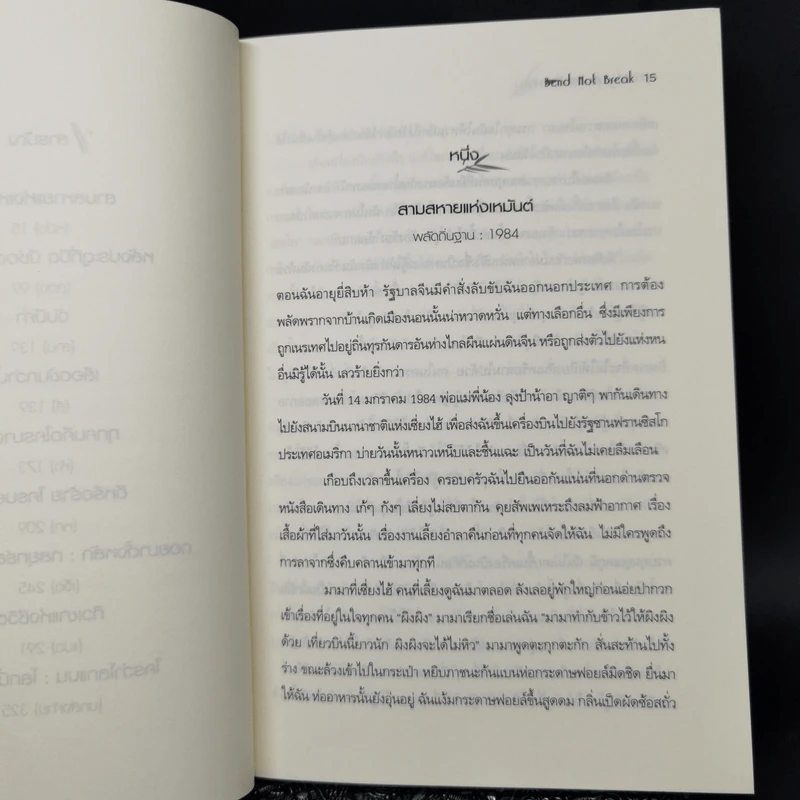 Bend Not Break 15
หนึ่ง
สามสหายแห่งเหมันต์
พลัดถิ่นฐาน : 1984
ตอนฉันอายุยี่สิบห้า รัฐบาลจีนมีคำสั่งลับขับฉันออกนอกประเทศ การต้อง
พลัดพรากจากบ้านเกิดเมืองนอนนั้นน่าหวาดหวั่น แต่ทางเลือกอื่น ซึ่งมีเพียงการ
ถูกเนรเทศไปอยู่ถิ่นทุรกันดารอันห่างไกลผืนแผ่นดินจีน หรือถูกส่งตัวไปยังแห่งหน
อื่นมิรู้ได้นั้น เลวร้ายยิ่งกว่า
วันที่ 14 มกราคม 1984 พ่อแม่พี่น้อง ลุงป้าน้าอา ญาติๆ พากันเดินทาง
ไปยังสนามบินนานาชาติแห่งเซี่ยงไฮ้ เพื่อส่งฉันขึ้นเครื่องบินไปยังรัฐซานฟรานซิสโก
ประเทศอเมริกา บ่ายวันนั้นหนาวเหน็บและชื้นแฉะ เป็นวันที่ฉันไม่เคยลืมเลือน
เกือบถึงเวลาขึ้นเครื่อง ครอบครัวฉันไปยืนออกันแน่นที่นอกด่านตรวจ
หนังสือเดินทาง เก้ๆ กังๆ เลี่ยงไม่สบตากัน คุยสัพเพเหระถึงลมฟ้าอากาศ เรื่อง
เสื้อผ้าที่ใส่มาวันนั้น เรื่องงานเลี้ยงอำลาคืนก่อนที่ทุกคนจัดให้ฉัน ไม่มีใครพูดถึง
การลาจากซึ่งคืบคลานเข้ามาทุกที
มามาที่เซี่ยงไฮ้ คนที่เลี้ยงดูฉันมาตลอด ลังเลอยู่พักใหญ่ก่อนเอ่ยปากวก
เข้าเรื่องที่อยู่ในใจทุกคน "ผิงผิง" มามาเรียกชื่อเล่นฉัน "มามาทำกับข้าวไว้ให้ผิงผิง
ด้วย เที่ยวบินนี้ยาวนัก ผิงผิงจะได้ไม่หิว" มามาพูดตะกุกตะกัก สั่นสะท้านไปทั้ง
ร่าง ขณะล้วงเข้าไปในกระเป๋า หยิบภาชนะก้นแบนห่อกระดาษฟอยล์มิดชิด ยื่นมา
ให้ฉัน ห่ออาหารนั้นยังอุ่นอยู่ ฉันแง้มกระดาษฟอยล์ขึ้นสูดดม กลิ่นเป็ดผัดซ้อสถั่ว